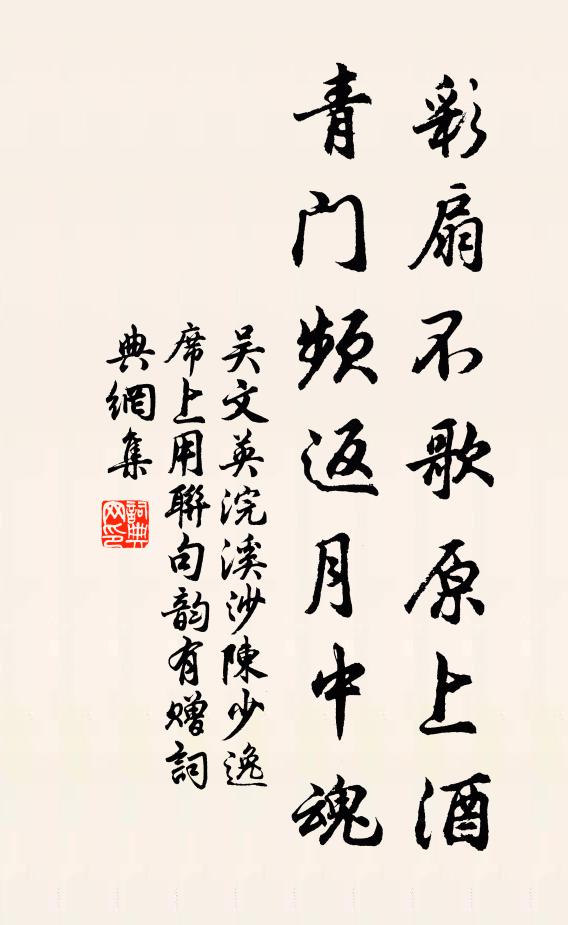 彩扇不歌原上酒
青門頻返月中魂
吴文英浣溪沙陳少逸
席上用聯句韵有赠詞
典網集
詞典网印